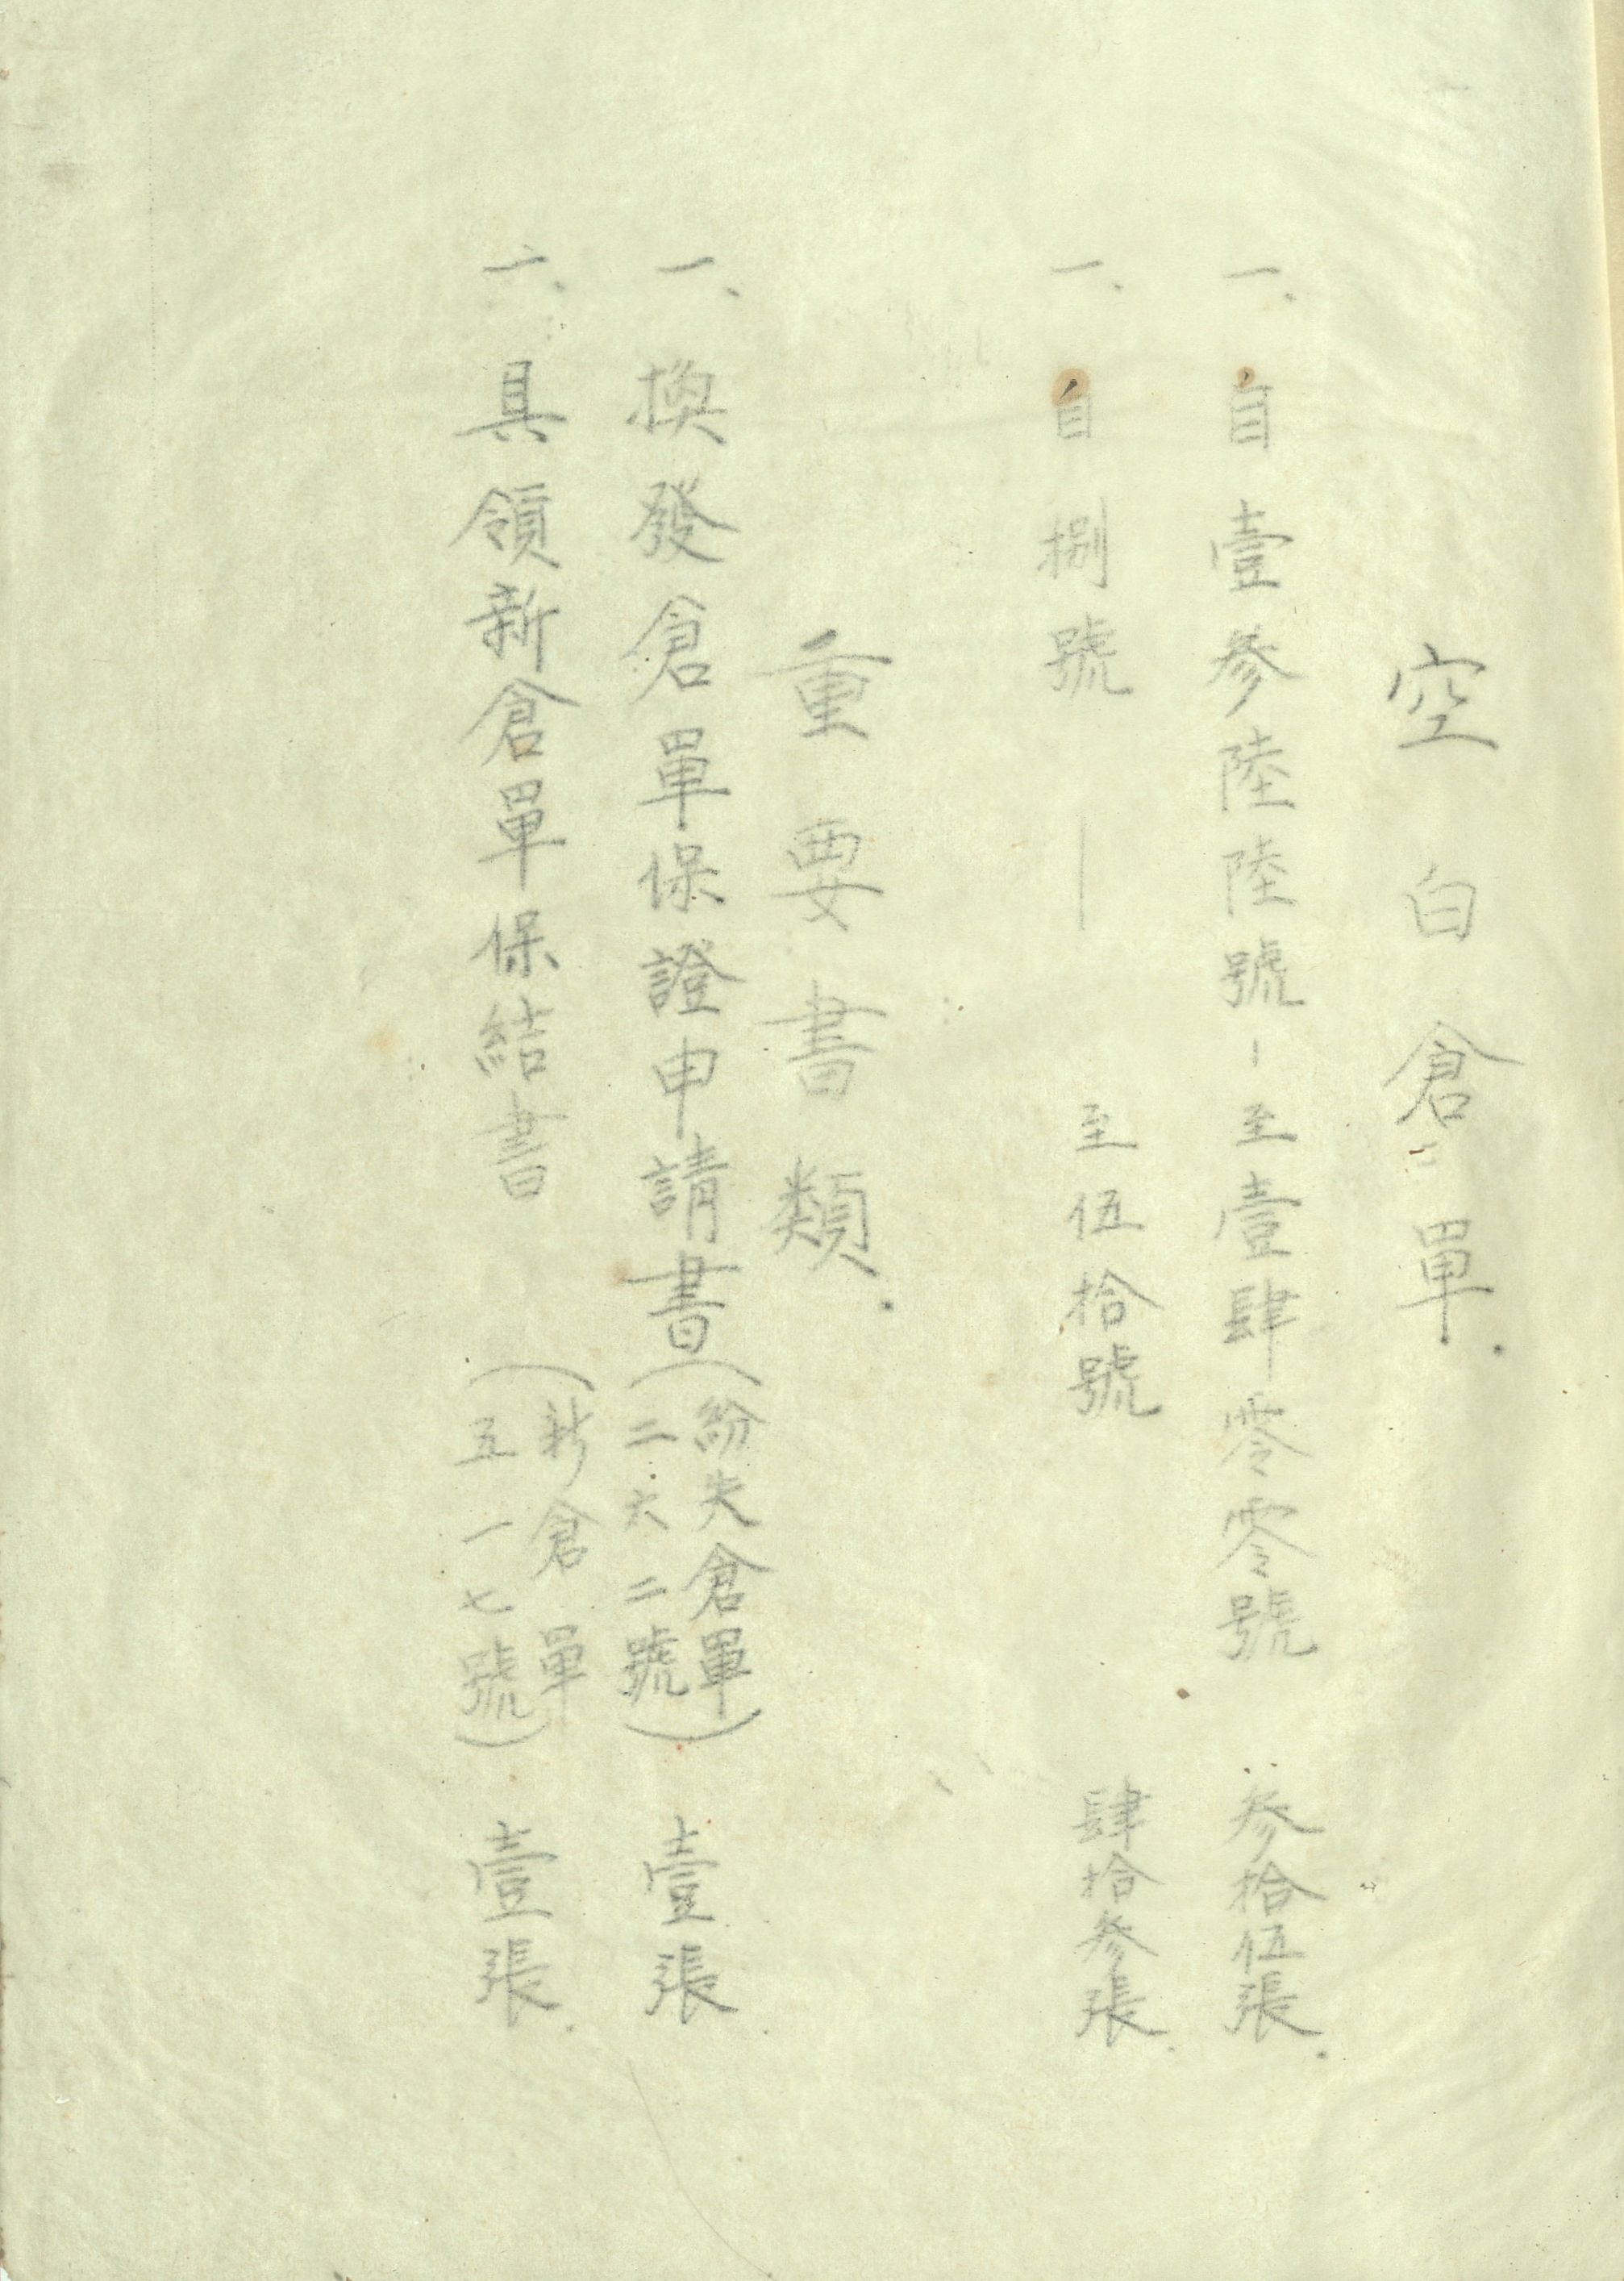 空白倉單.
一、自壹參陸陸號－至壹肆零零號 參拾伍張.
一、自捌號——至伍拾號 肆拾參張.
重要書類.
一、換發倉單保證申請書(紛失倉單二六二號) 壹張.
一、具領新倉單保結書(新倉單五一七號) 壹張.